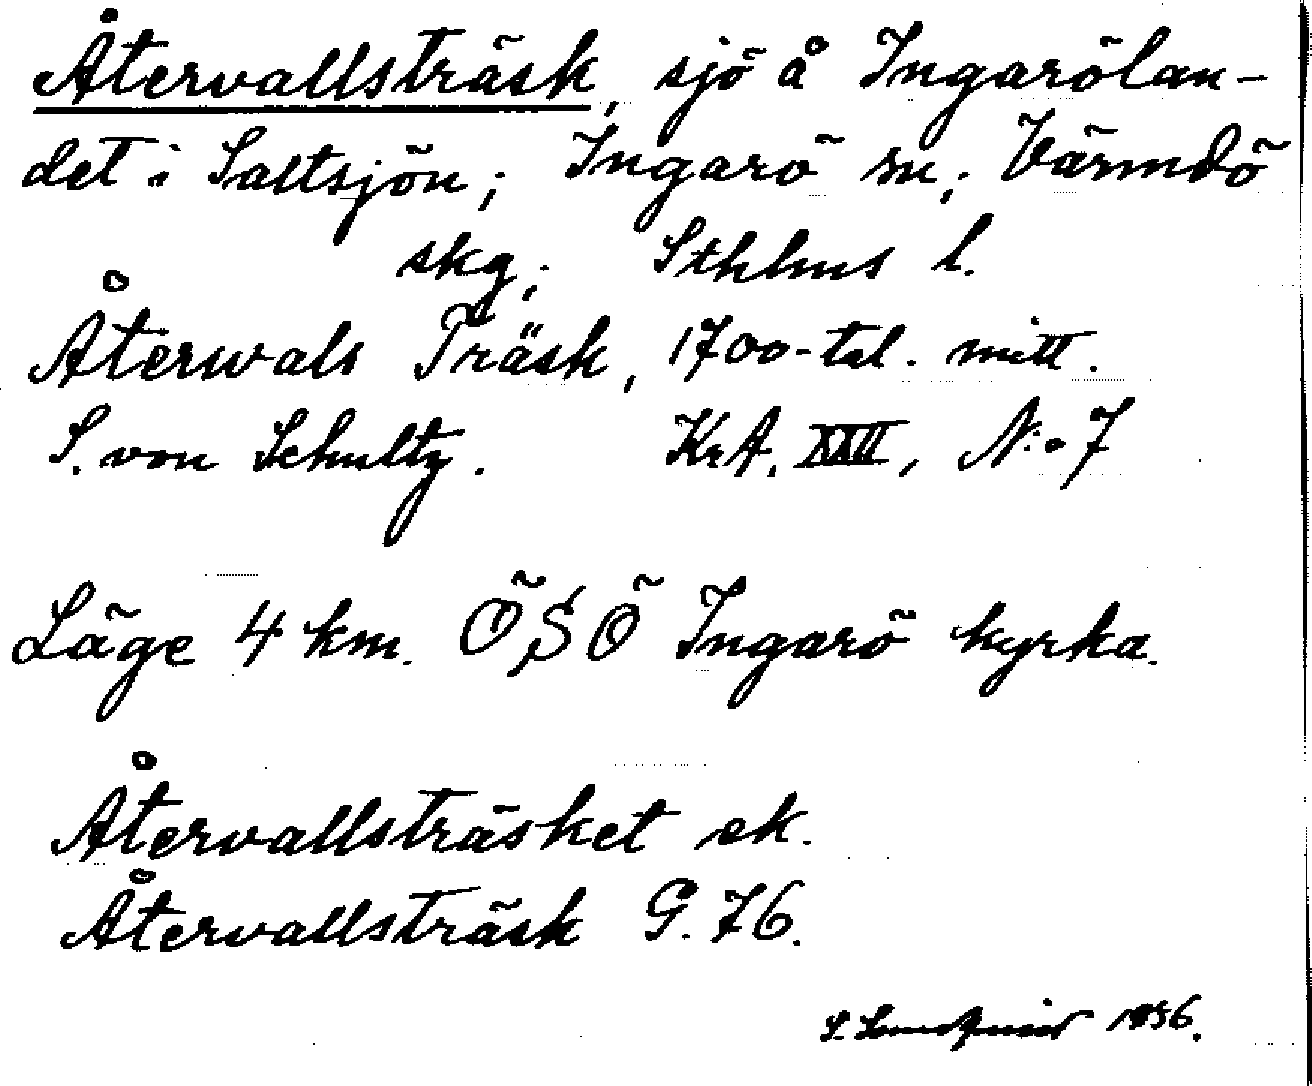 Återvallsträsk, sjö å Ingarölan-
det i Saltsjön; Ingarö sn, Värmdö
skg, Sthlms l.
Återwals Träsk, 1700-tal. mitt.
S. von Schultz. KrA. XXII, N:o 7
Läge 4 km. ÖSÖ Ingarö kyrka.
Återvallsträsket ek.
Återvallsträsk G. 76.
1956.